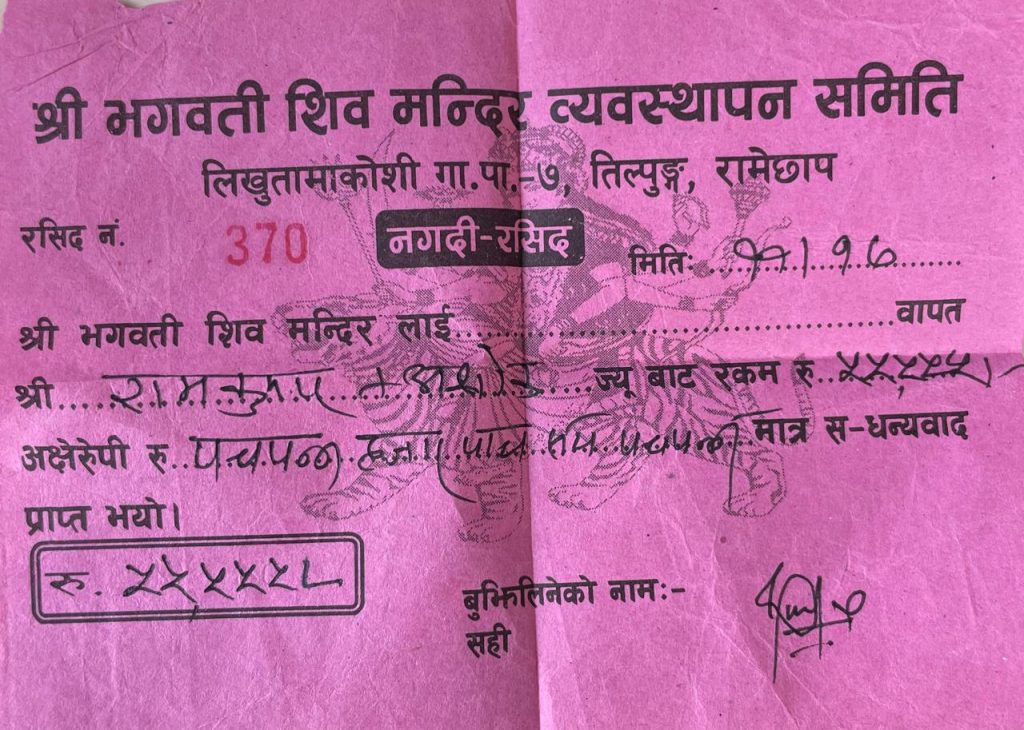 श्री भगवती शिव मन्दिर व्यवस्थापन समिति
लिखुतामाकोशी गा.पा.-७, तिल्पुङ्ग, रामेछाप
रसिद नं. 370 नगदी-रसिद
मितिः
श्री भगवती शिव मन्दिर लाई वापत
श्री रामकुमार ज्यू बाट रकम रु. ५५,५५५।-
अक्षेरुपी रु. पचपन्न हजार पाच सय पचपन्न मात्र स-धन्यवाद
प्राप्त भयो।
रु. ५५,५५५।-
बुझिलिनेको नामः-
सही